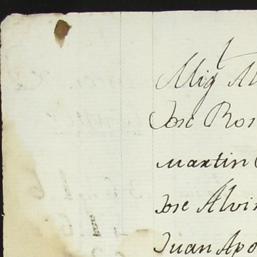 Mig M
Jose Ros
Martin
Jose Alvi
Juan Apo